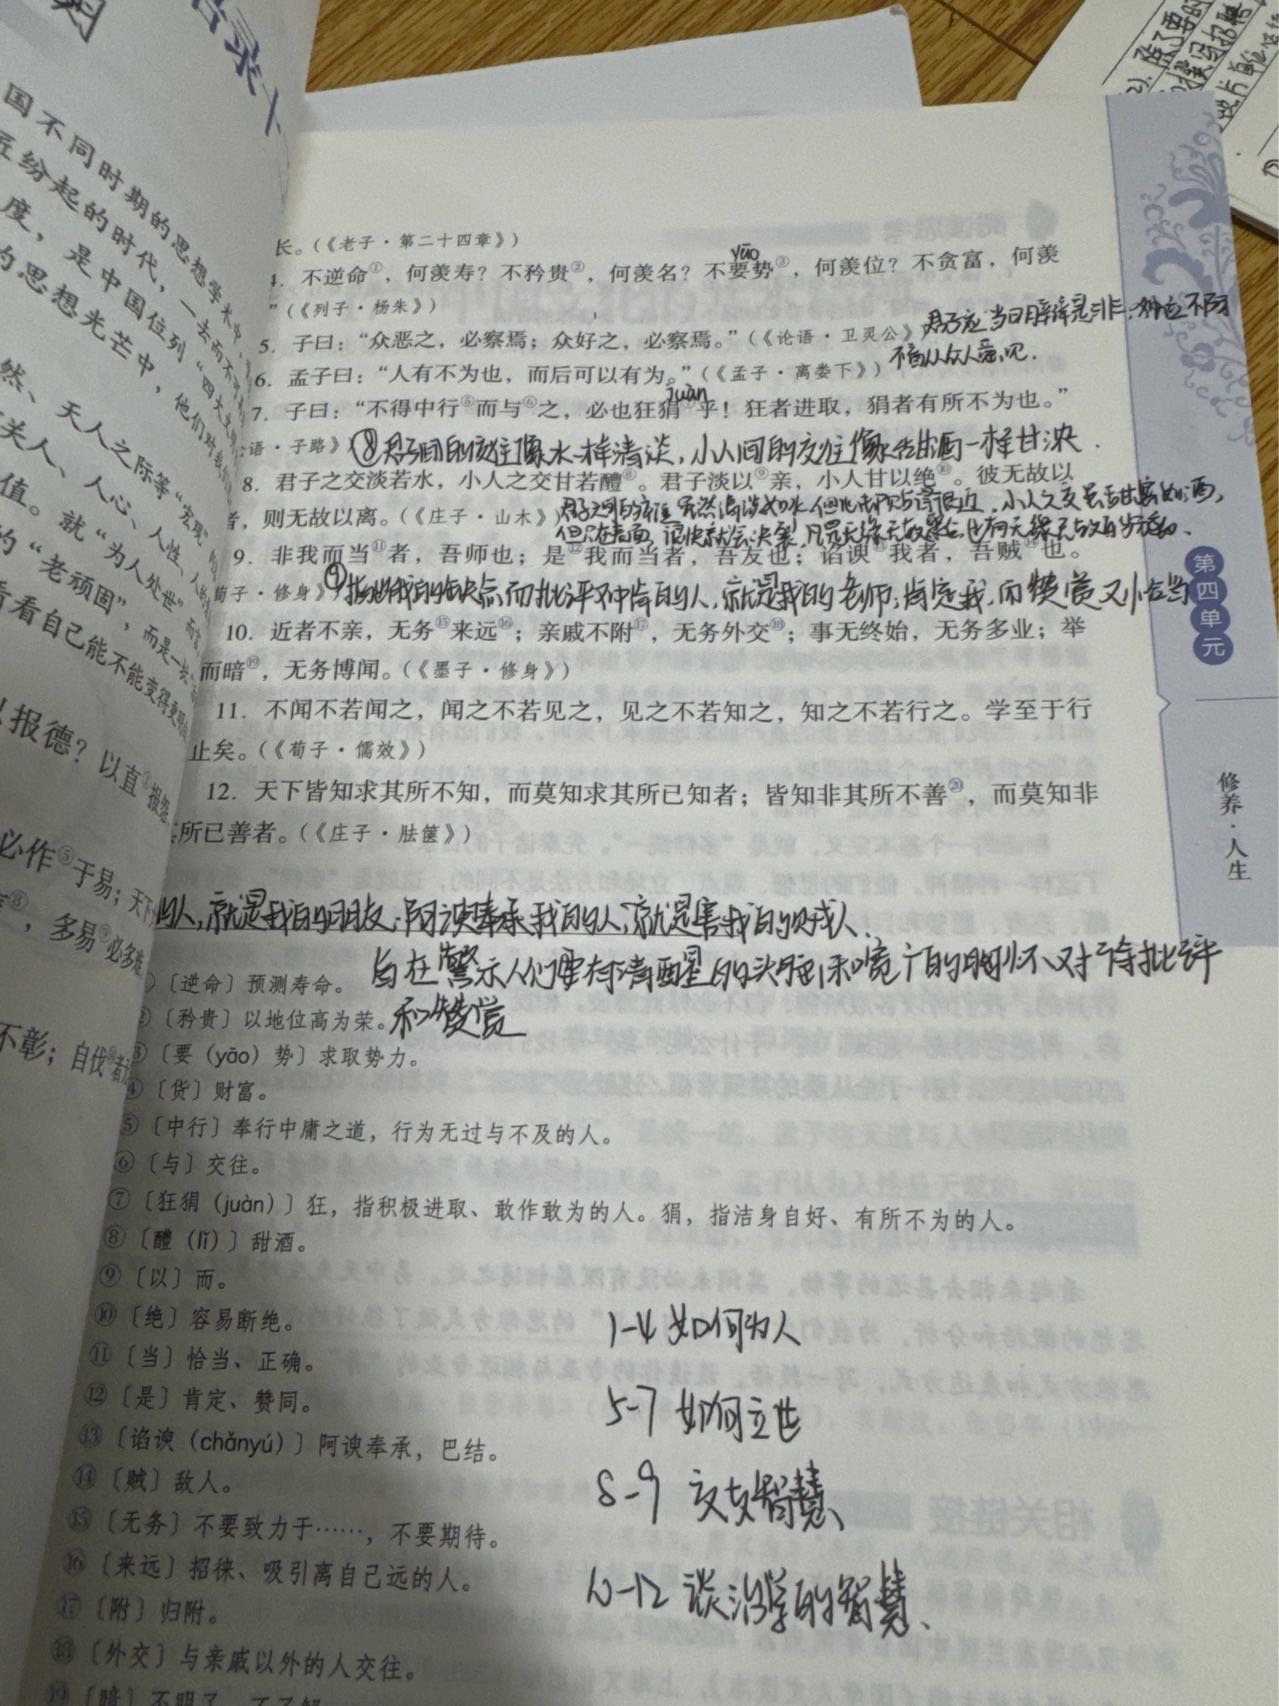 语录十
国不同时期的思想学术
纷起的时代，一去而不
度，是中国位列“四大
的思想光芒中，他们对
然、天人之际等“宏观”
关人、人心、人性、人
值。就“为人处世”而言
的“老顽固”，而是一
看看自己能不能变得更
报德？以直①报怨
必作⑤于易；天下
，多易⑨必多难
不彰；自伐者
长。（《老子·第二十四章》）
4. 不逆命①，何羡寿？不矜贵②，何羡名？不要势③，何羡位？不贪富，何羡
yāo
”（《列子·杨朱》）
5. 子曰：“众恶之，必察焉；众好之，必察焉。”（《论语·卫灵公》）
君子应当明辨是非，独立不阿
不盲从众人意见.
6. 孟子曰：“人有不为也，而后可以有为。”（《孟子·离娄下》）
juàn
7. 子曰：“不得中行⑤而与⑥之，必也狂狷⑦乎！狂者进取，狷者有所不为也。”
语·子路》）
⑧君子间的交往像水一样清淡，小人间的交往像甜酒一样甘浓.
8. 君子之交淡若水，小人之交甘若醴⑧。君子淡以⑨亲，小人甘以绝⑩。彼无故以
者，则无故以离。（《庄子·山木》）
君子之间的交往虽然清淡如水，但心却贴得很近，小人之交虽甘蜜如酒，
但只在表面，很快就会决裂，凡是无缘无故聚合，也有无缘无故的分离的.
9. 非我而当⑪者，吾师也；是⑫我而当者，吾友也；谄谀⑬我者，吾贼⑭也。
荀子·修身》）
⑨指出我的缺点而批评又中肯的人，就是我的老师；肯定我，而赞赏又恰当
10. 近者不亲，无务⑮来远⑯；亲戚不附⑰，无务外交⑱；事无终始，无务多业；举
而暗⑲，无务博闻。（《墨子·修身》）
11. 不闻不若闻之，闻之不若见之，见之不若知之，知之不若行之。学至于行
止矣。（《荀子·儒效》）
12. 天下皆知求其所不知，而莫知求其所已知者；皆知非其所不善⑳，而莫知非
其所已善者。（《庄子·胠箧》）
的人，就是我的朋友；阿谀奉承我的人，就是害我的贼人.
旨在警示人们要有清醒的头脑和宽广的胸怀对待批评
和赞赏
① 〔逆命〕预测寿命。
② 〔矜贵〕以地位高为荣。
③ 〔要（yāo）势〕求取势力。
④ 〔货〕财富。
⑤ 〔中行〕奉行中庸之道，行为无过与不及的人。
⑥ 〔与〕交往。
⑦ 〔狂狷（juàn）〕狂，指积极进取、敢作敢为的人。狷，指洁身自好、有所不为的人。
⑧ 〔醴（lǐ）〕甜酒。
⑨ 〔以〕而。
⑩ 〔绝〕容易断绝。
⑪ 〔当〕恰当、正确。
⑫ 〔是〕肯定、赞同。
⑬ 〔谄谀（chǎnyú）〕阿谀奉承，巴结。
⑭ 〔贼〕敌人。
⑮ 〔无务〕不要致力于……，不要期待。
⑯ 〔来远〕招徕、吸引离自己远的人。
⑰ 〔附〕归附。
⑱ 〔外交〕与亲戚以外的人交往。
⑲ 〔暗〕不明了、不了解
1-4 如何为人
5-7 如何立世
8-9 交友智慧、
10-12 谈治学的智慧、
第四单元
修养·人生